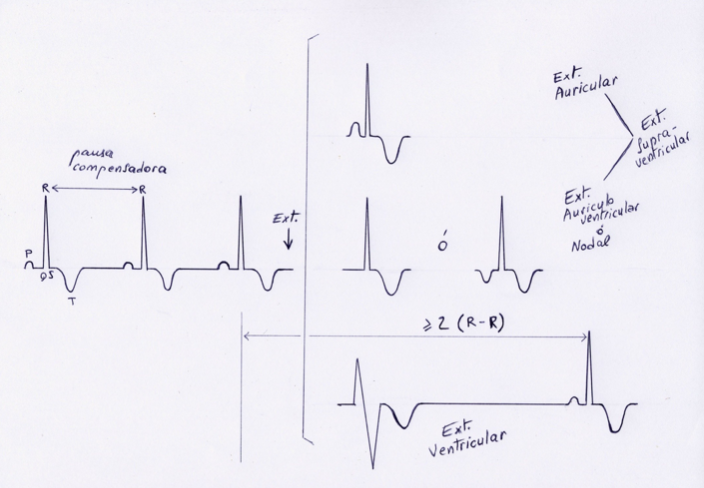 pausa
compensadora
R R
P
QS
T
Ext.
Ext.
Auricular
Ext.
Supra-
ventricular
Ext.
Auriculo
ventricular
ó
Nodal
ó
≥ 2 (R-R)
Ext.
Ventricular